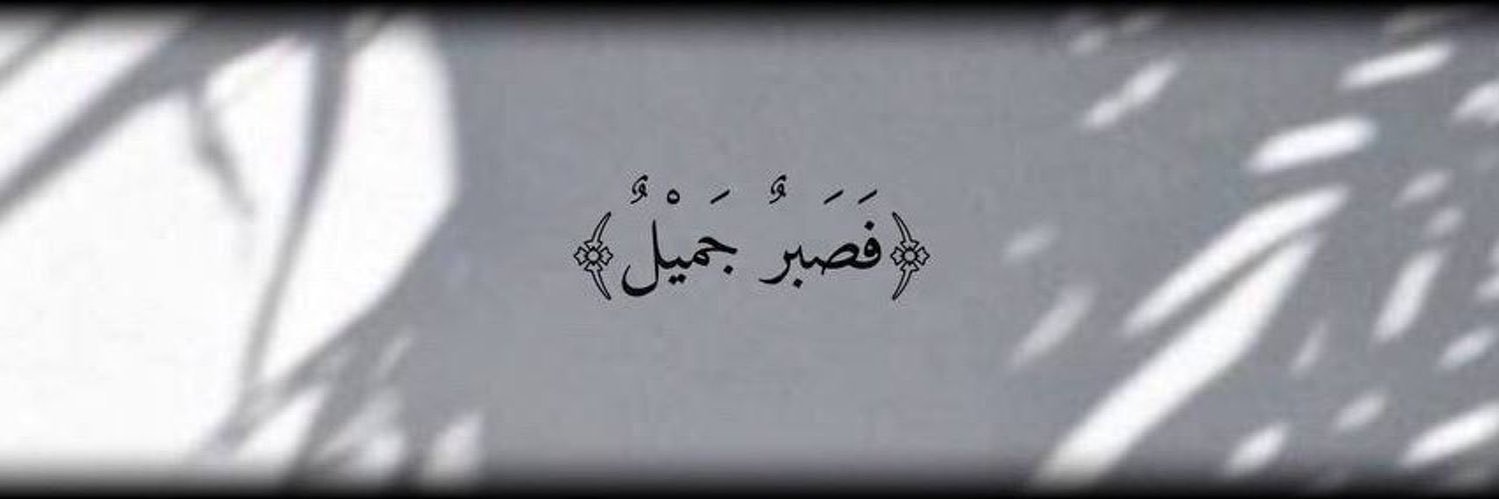 ﴿فَصَبَرٌ جَمِيْلٌ﴾